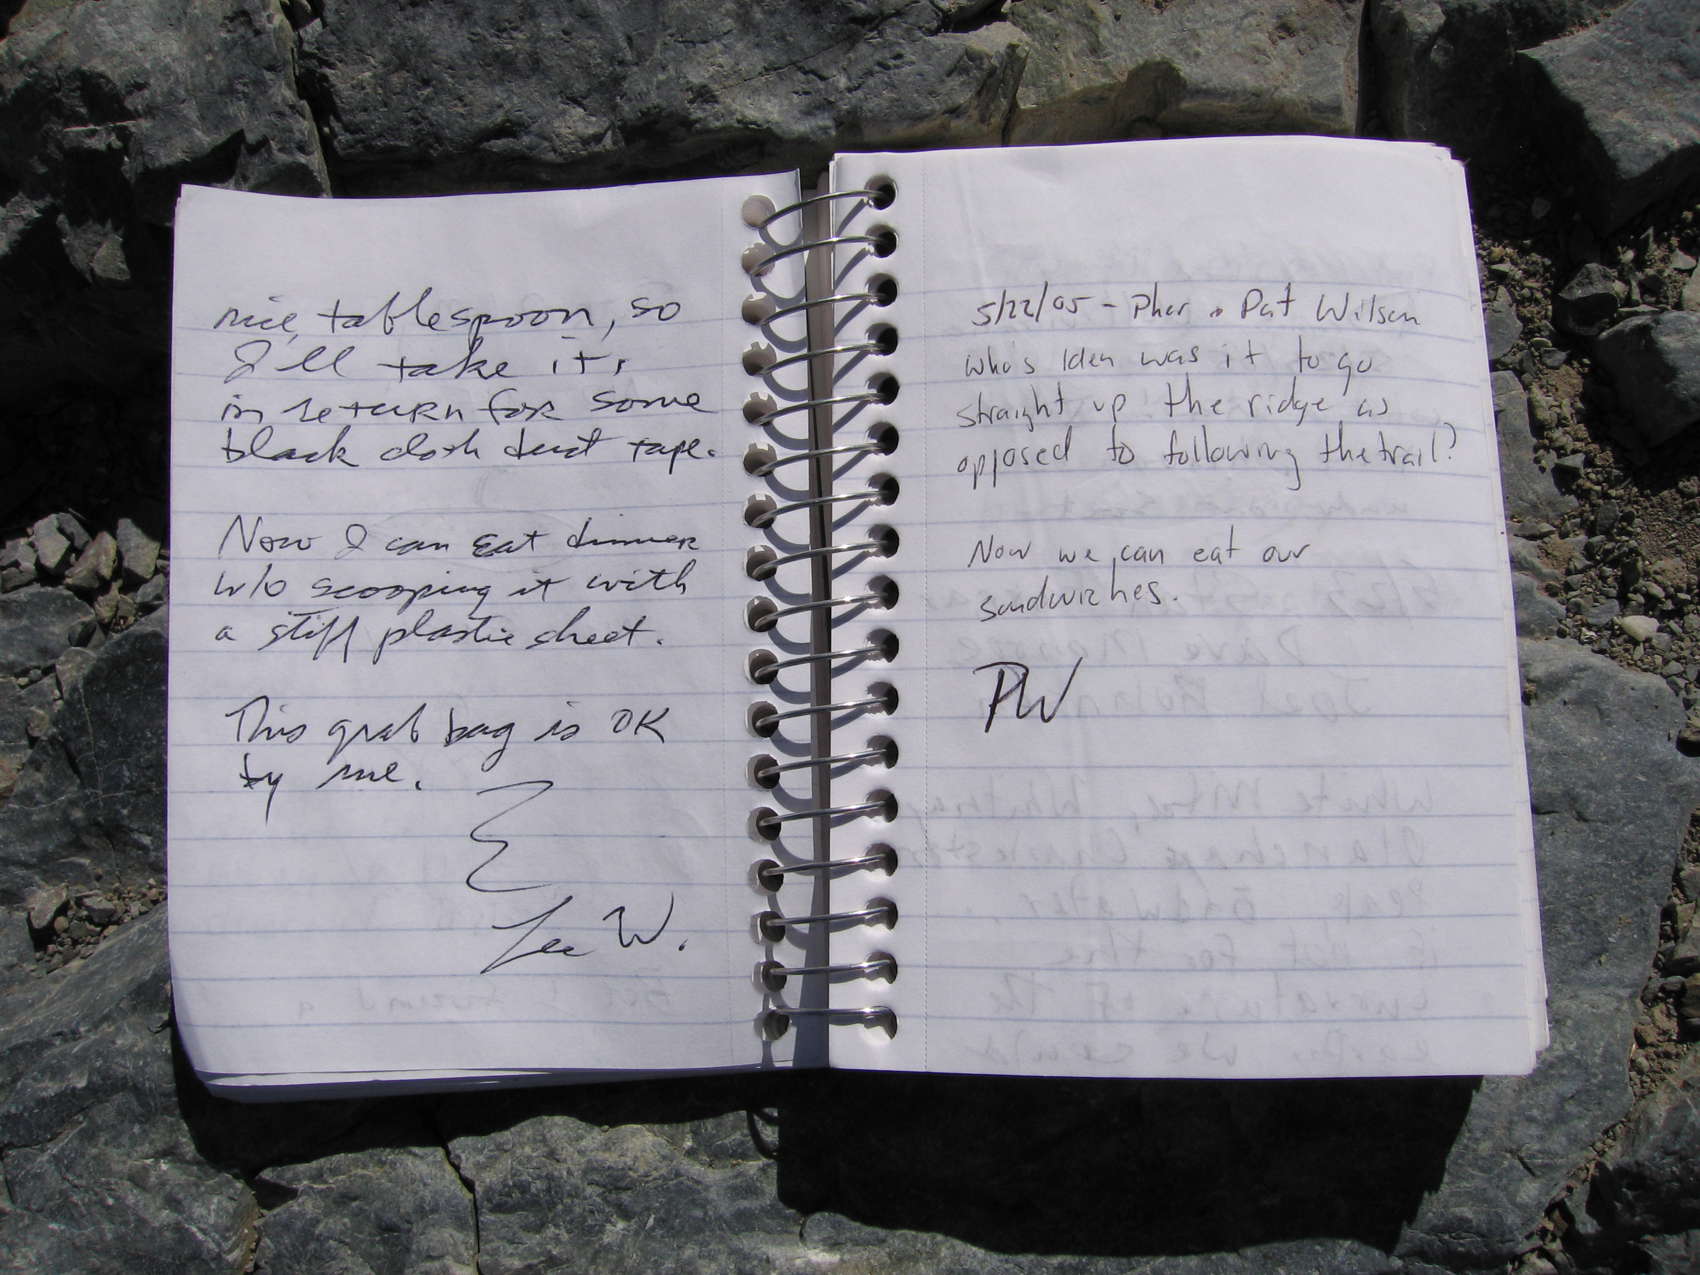 nice tablespoon, so
I'll take it,
in return for some
black cloth duct tape.
Now I can eat dinner
w/o scooping it with
a stiff plastic sheet.
This grab bag is OK
by me.
Lee W.
5/22/05 - Pat Wilson
who's Idea was it to go
straight up the ridge as
opposed to following the trail?
Now we can eat our
sandwiches.
PW